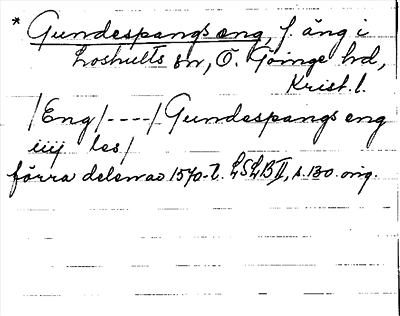 * Gundespangs eng, f. äng i
Loshults sn, Ö. Göinge hd,
Krist. l.
/Eng/----/Gundespangs eng
iiij les/
förra delen av 1570-t. LSLB II, s. 130. orig.